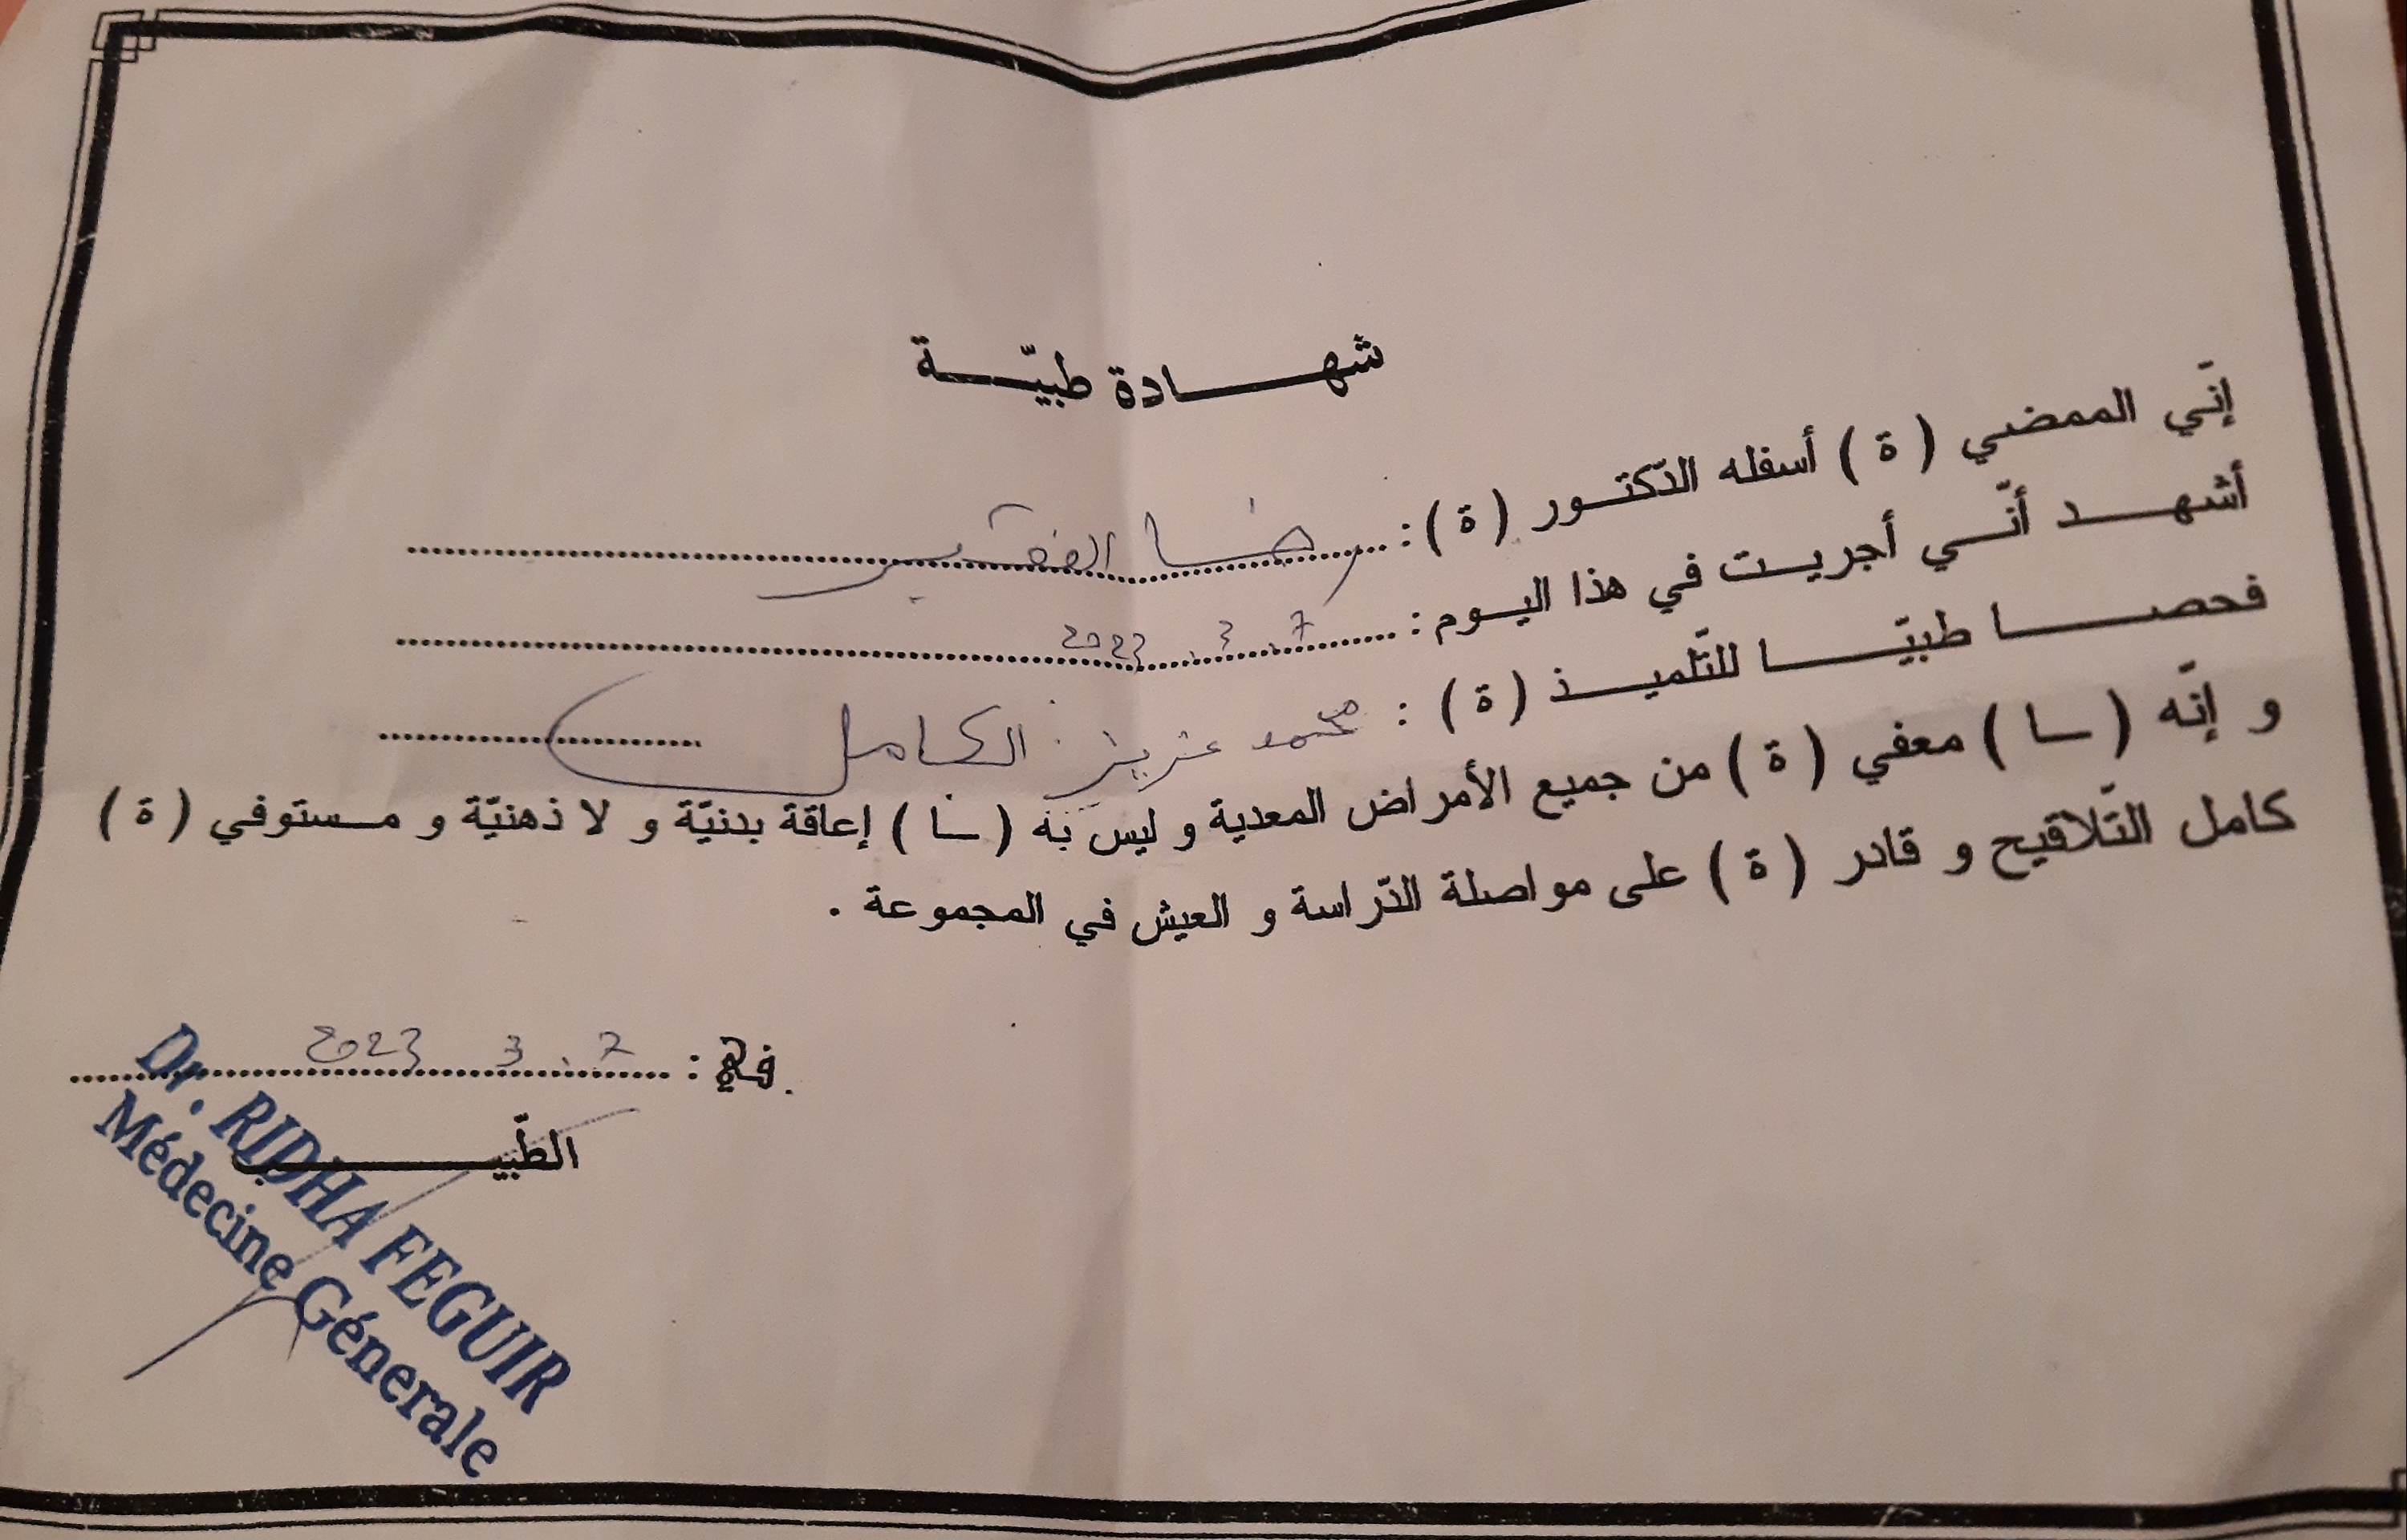 شهادة طبيّة
إنّي الممضي ( ة ) أسفله الدّكتور ( ة ) : رضا الفقير
أشهد أنّي أجريت في هذا اليوم : 7 . 3 . 2023
فحصا طبيّا للتّلميذ ( ة ) : محمد عزيز الكامل
و إنّه ( ـا ) معفي ( ة ) من جميع الأمراض المعدية و ليس به ( ـا ) إعاقة بدنيّة و لا ذهنيّة و مستوفي ( ة )
كامل التّلاقيح و قادر ( ة ) على مواصلة الدّراسة و العيش في المجموعة .
في : 7 . 3 . 2023
الطّبيب
Dr. RIDHA FEGUIR
Médecine Génerale